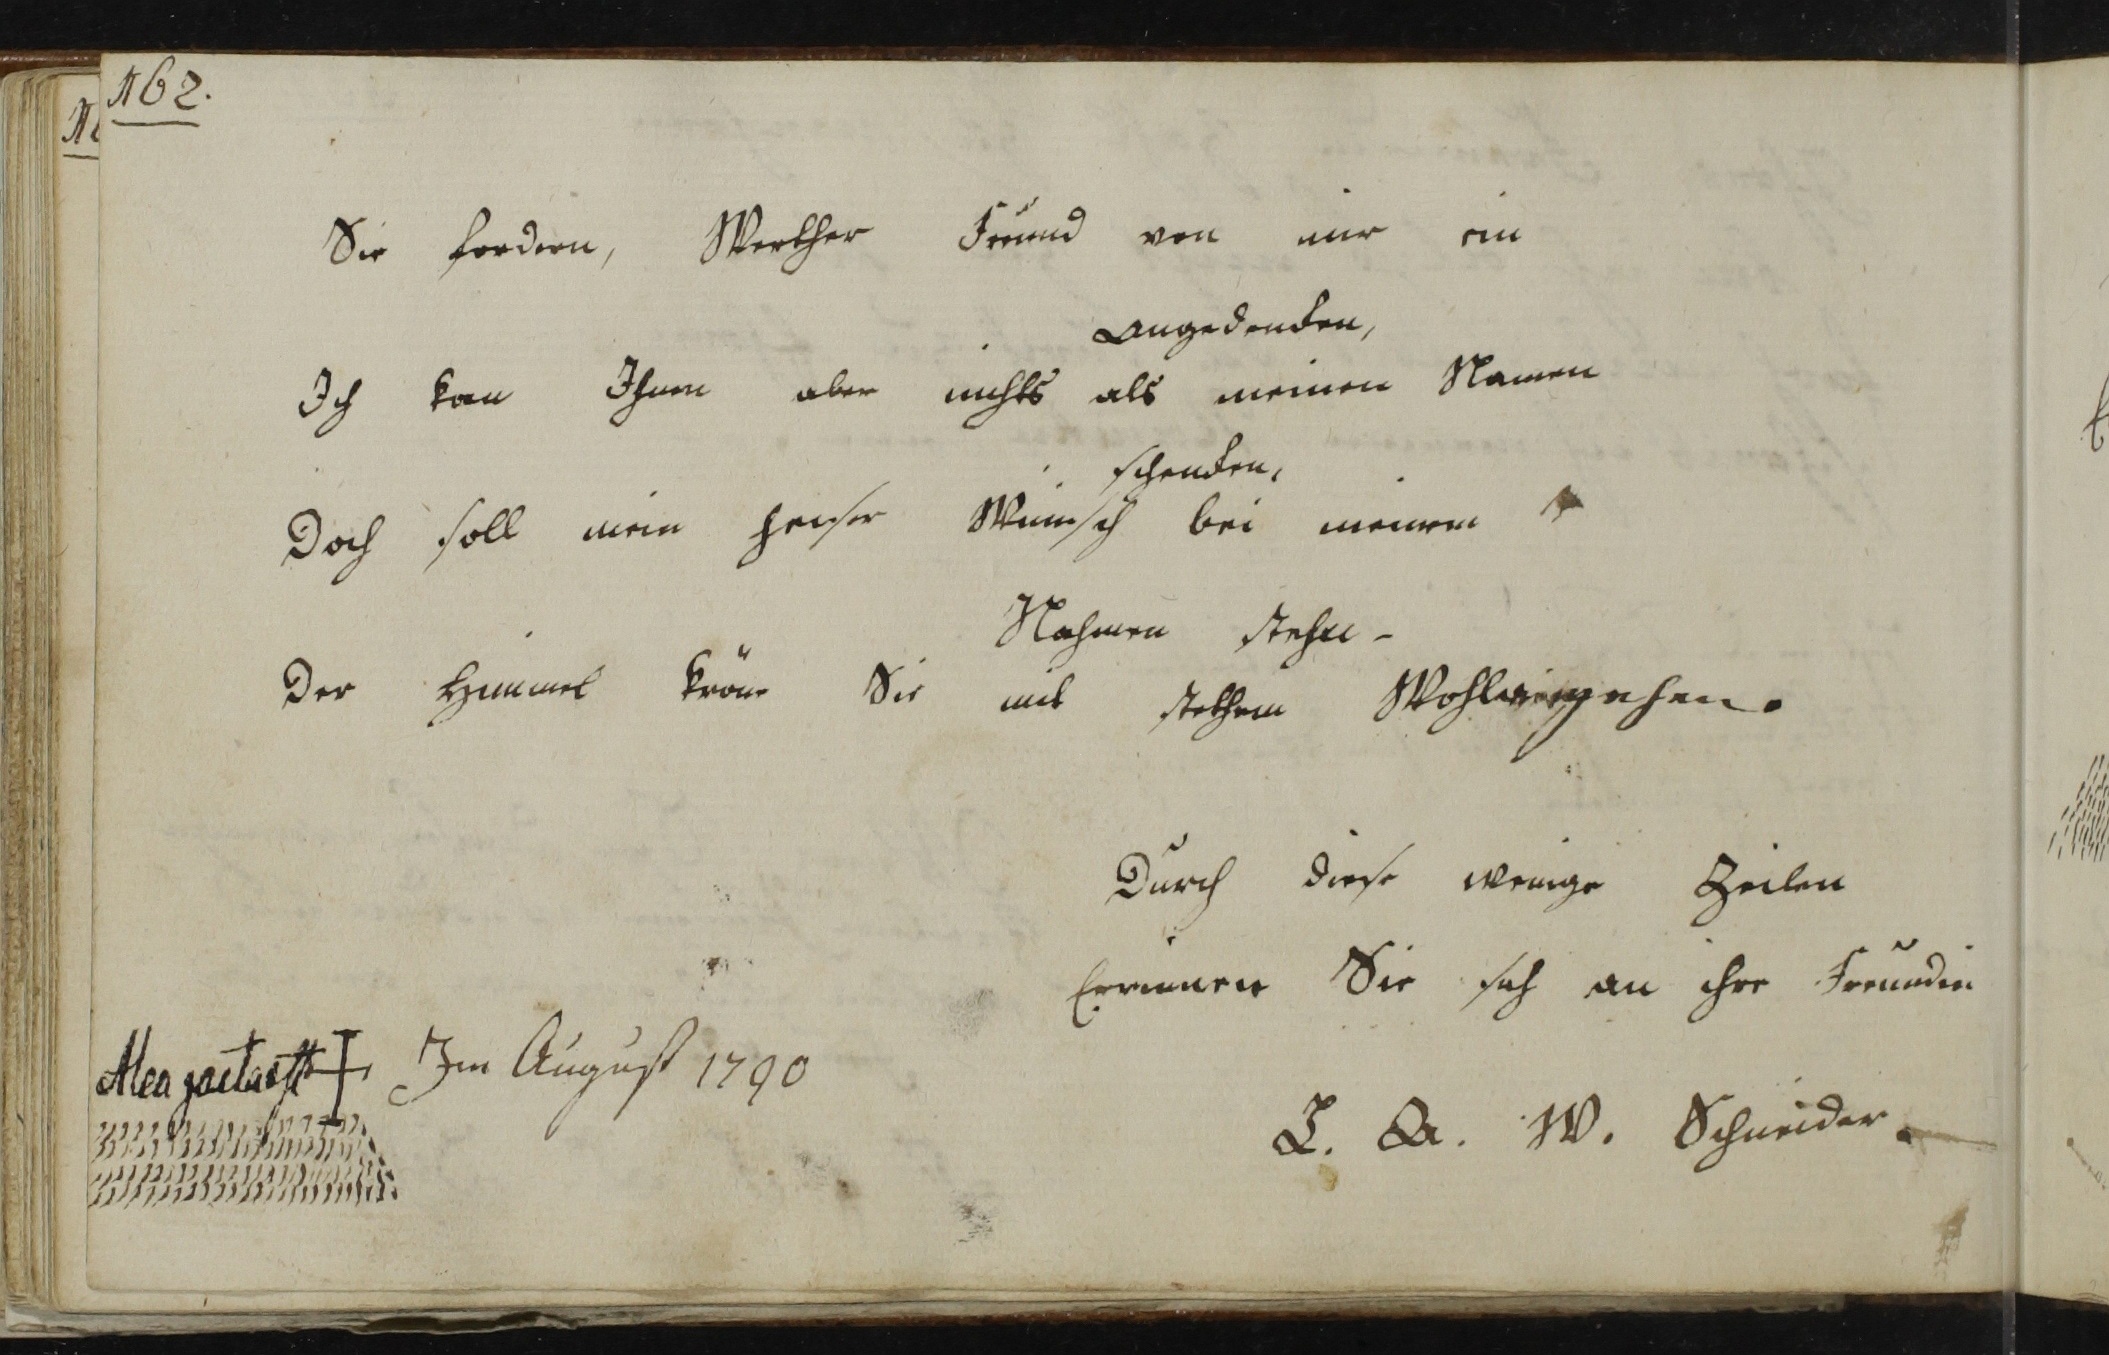 162.
Sie fordern, Werther Freund von mir ein
Angedencken,
Ich kan Ihnen aber nichts als meinen Namen
schencken,
Doch soll mein heiser Wunsch bei meinem
Nahmen stehn-
Der Himmel kröne Sie mit stethem Wohlergehen.
Durch diese wenige Zeilen
Errinnern Sie sich an ihre Freundin
Im August 1790
W. Schneider.